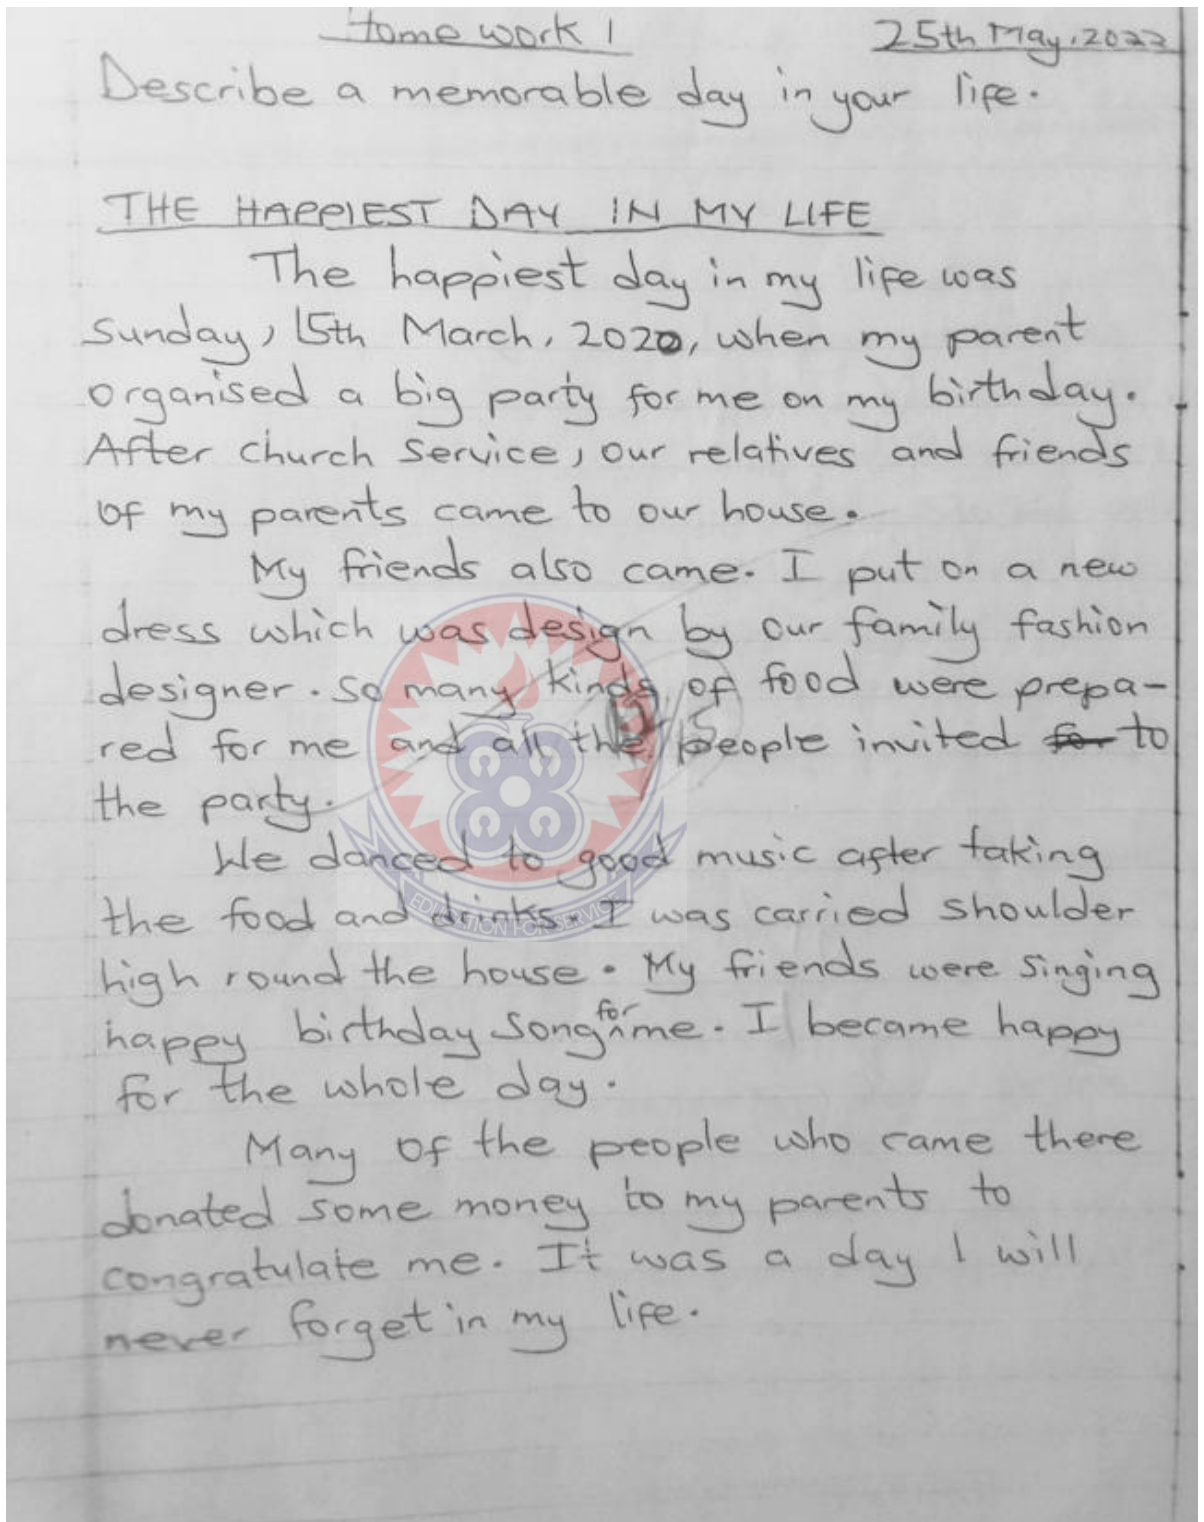 Home work 1
25th May, 2022
Describe a memorable day in your life.
THE HAPPIEST DAY IN MY LIFE
The happiest day in my life was
Sunday, 15th March, 2020, when my parent
organised a big party for me on my birthday.
After church service, our relatives and friends
of my parents came to our house.
My friends also came. I put on a new
dress which was design by our family fashion
designer. So many kinds of food were prepa-
red for me and all the people invited for to
the party.
We danced to good music after taking
the food and drinks. I was carried shoulder
high round the house. My friends were singing
happy birthday song for me. I became happy
for the whole day.
Many of the people who came there
donated some money to my parents to
congratulate me. It was a day I will
never forget in my life.
EDUCATION FOR SERVICE